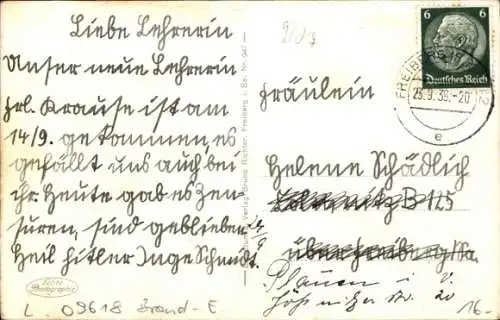 Liebe Lehrerin
Unser neue Lehrerin
Frl. Krause ist am
14/9. gekommen, es
gefällt uns auch bei
ihr. Heute gab es Zen-
suren, sind geblieben
Heil Hitler Inge Schmidt.
14/9
Echte Photographie
L. 09618 Brand-E.
Verlag Bruno Richter, Freiberg i. Sa. Nr. 947
6 6
Deutsches Reich
FREIBERG
23.9.39.-20
e
Fräulein
Helene Schädlich
B 125
über Freiberg/Sa.
Plauen i. V.
Str. 20
16-